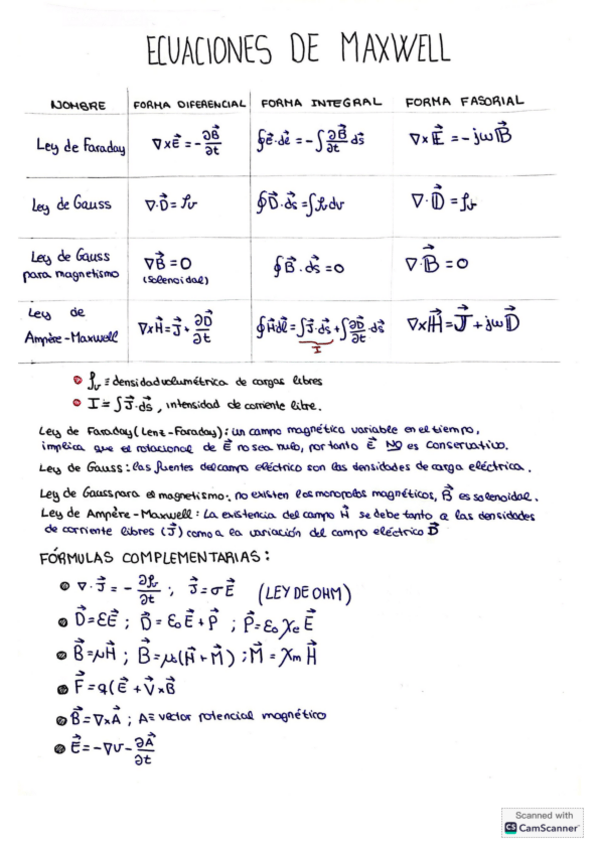 ECUACIONES DE MAXWELL
NOMBRE FORMA DIFERENCIAL FORMA INTEGRAL FORMA FASORIAL
Ley de Faraday ∇×E⃗ = -∂B⃗/∂t ∮E⃗·dℓ⃗ = -∫∂B⃗/∂t ds⃗ ∇×E⃗ = -jωB⃗
Ley de Gauss ∇·D⃗ = ρv ∮D⃗·ds⃗ = ∫ρv dv ∇·D⃗ = ρv
Ley de Gauss
para magnetismo ∇B⃗ = 0 ∮B⃗·ds⃗ = 0 ∇·B⃗ = 0
(solenoidal)
Ley de
Ampère-Maxwell ∇×H⃗ = J⃗ + ∂D⃗/∂t ∮H⃗dℓ⃗ = ∫J⃗·ds⃗ + ∫∂D⃗/∂t·ds⃗ ∇×H⃗ = J⃗ + jωD⃗
I
ρv ≡ densidad volumétrica de cargas libres
I ≡ ∫J⃗·ds⃗, intensidad de corriente libre.
Ley de Faraday (Lenz-Faraday): un campo magnético variable en el tiempo,
implica que el rotacional de E⃗ no sea nulo, por tanto E⃗ NO es conservativo.
Ley de Gauss: las fuentes del campo eléctrico son las densidades de carga eléctrica.
Ley de Gauss para el magnetismo: no existen los monopolos magnéticos, B⃗ es solenoidal.
Ley de Ampère-Maxwell: La existencia del campo H⃗ se debe tanto a las densidades
de corriente libres (J⃗) como a la variación del campo eléctrico D⃗
FÓRMULAS COMPLEMENTARIAS:
∇·J⃗ = -∂ρv/∂t ; J⃗ = σE⃗ (LEY DE OHM)
D⃗ = εE⃗ ; D⃗ = ε₀E⃗ + P⃗ ; P⃗ = ε₀χeE⃗
B⃗ = μH⃗ ; B⃗ = μ(H⃗ + M⃗) ; M⃗ = χmH⃗
F⃗ = q(E⃗ + V⃗×B⃗
B⃗ = ∇×A⃗ ; A ≡ vector potencial magnético
E⃗ = -∇v - ∂A⃗/∂t
Scanned with
CS CamScanner